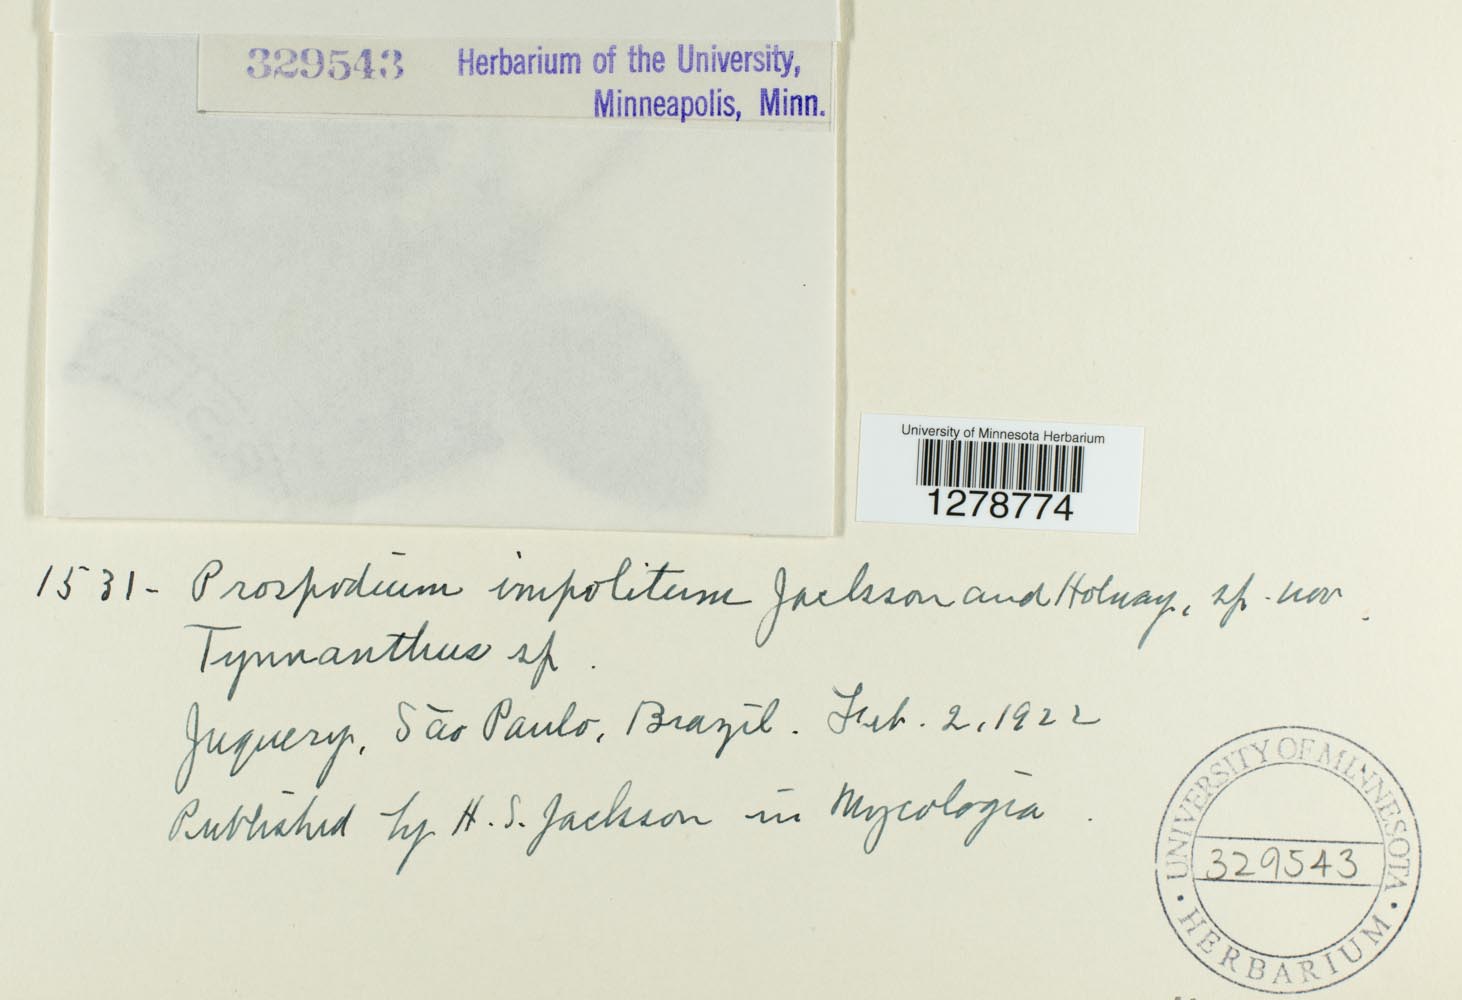 329543 Herbarium of the University,
Minneapolis, Minn.
University of Minnesota Herbarium
1278774
1531- Prospodium impolitum Jackson and Holway, sp. nov.
Tynnanthus sp.
Juquery, São Paulo, Brazil. Feb. 2, 1922
Published by H. S. Jackson in Mycologia.
UNIVERSITY OF MINNESOTA
329543
HERBARIUM